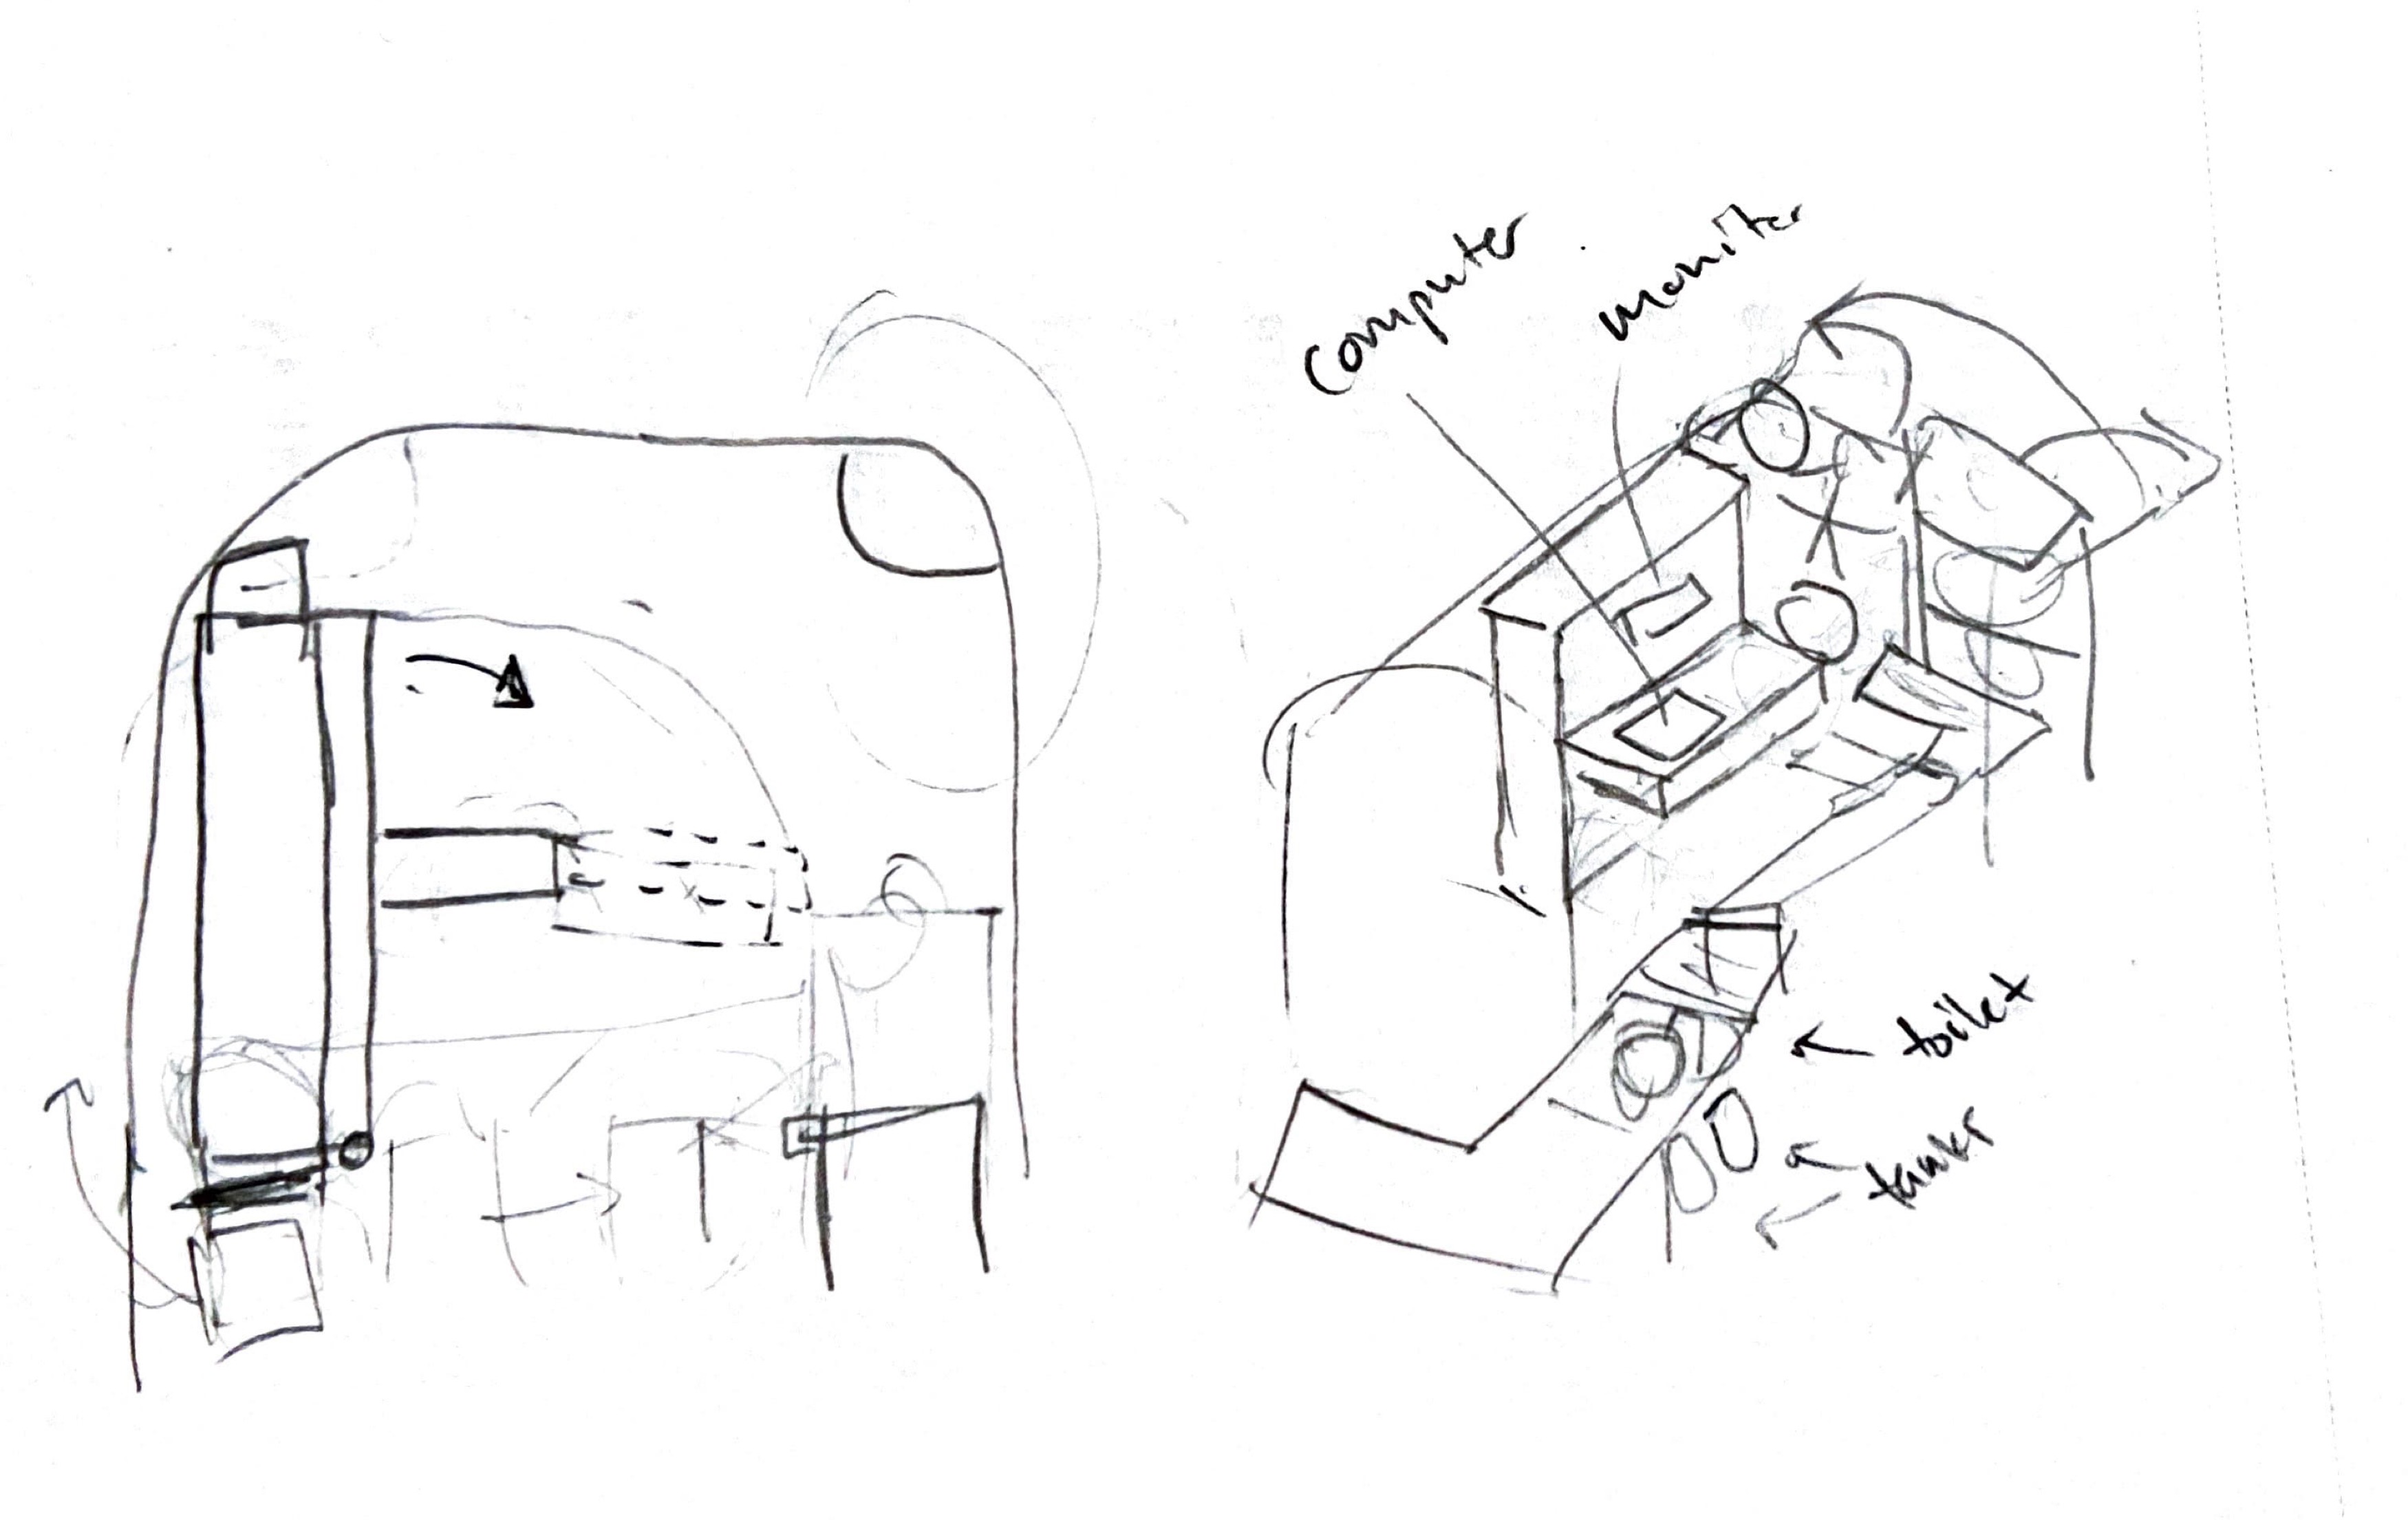 computer
monitor
toilet
tanks